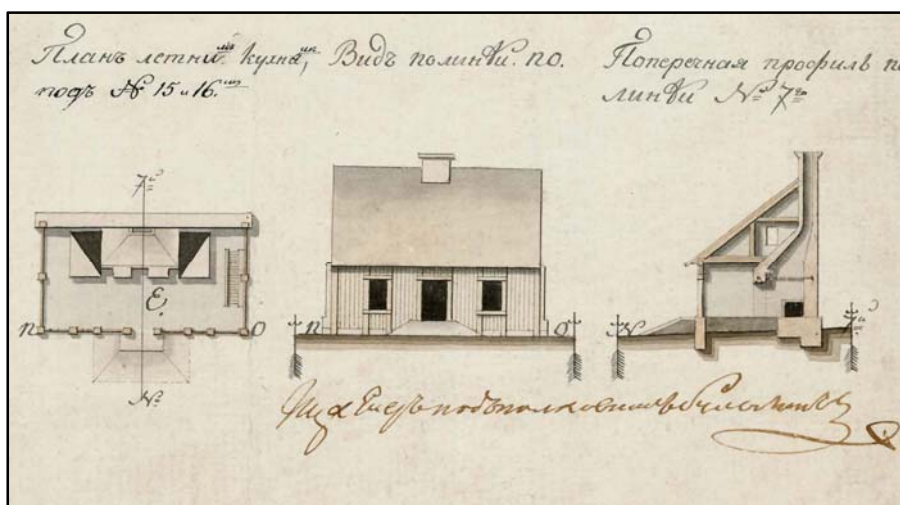 Планъ летни кухна, подъ № 15 и 16.
Видъ полинѣи. по.
Поперечная профиль по
линѣи № 7
7
Е.
п О
№
п О
№ 7
подъполковникъ